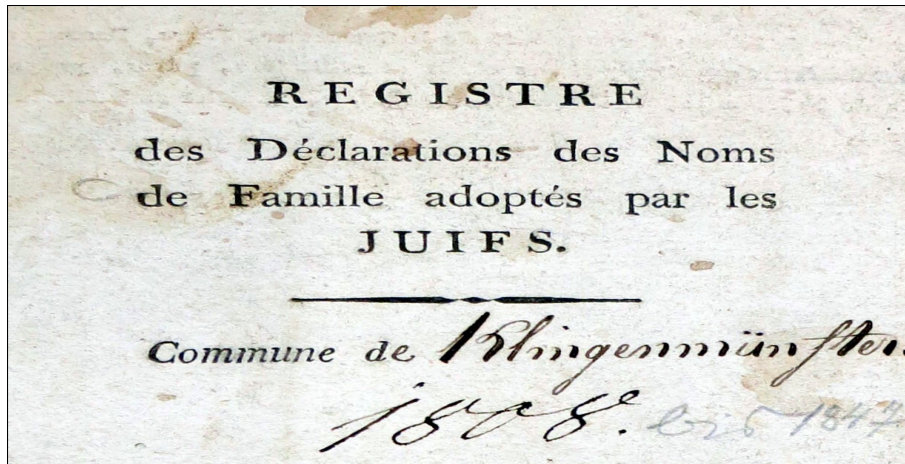 REGISTRE
des Déclarations des Noms
de Famille adoptés par les
JUIFS.
Commune de Klingenmünster.
1808. bis 1847